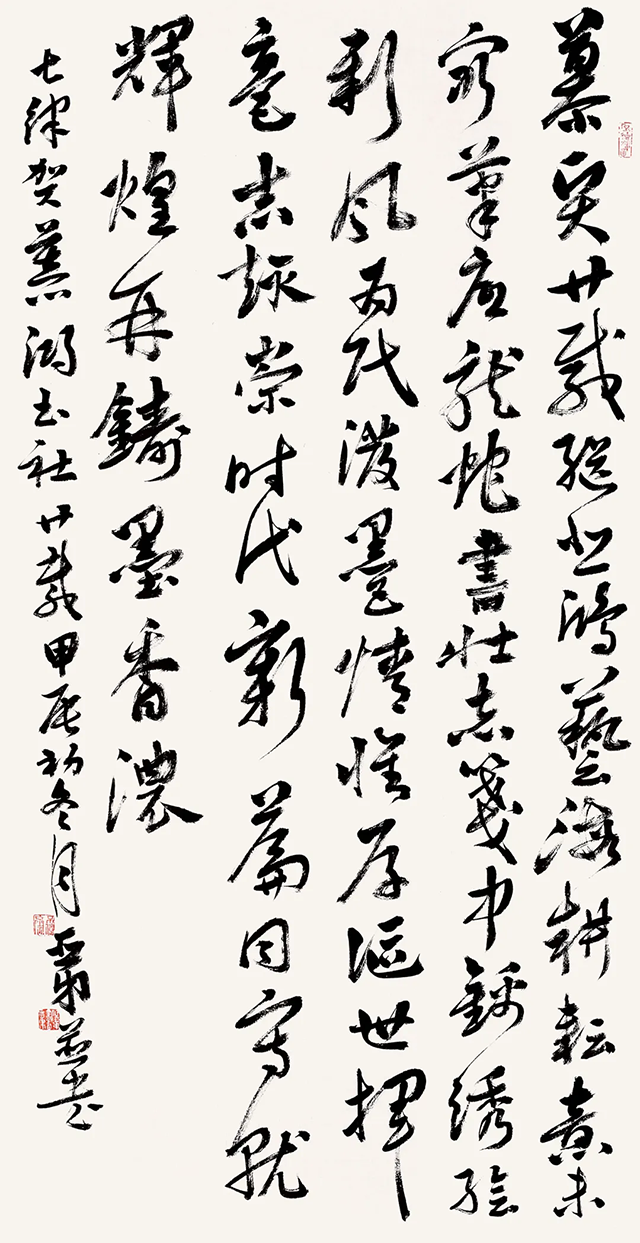 慕贤廿载继悲鸿艺海耕耘意未
穷笔底龙蛇书壮志笺中锦绣绘
新风为民泼墨情怀厚讴世挥
毫志趣崇时代新篇同写就
辉煌再铸墨香浓
七律贺慕鸿书社廿载甲辰初冬月并书